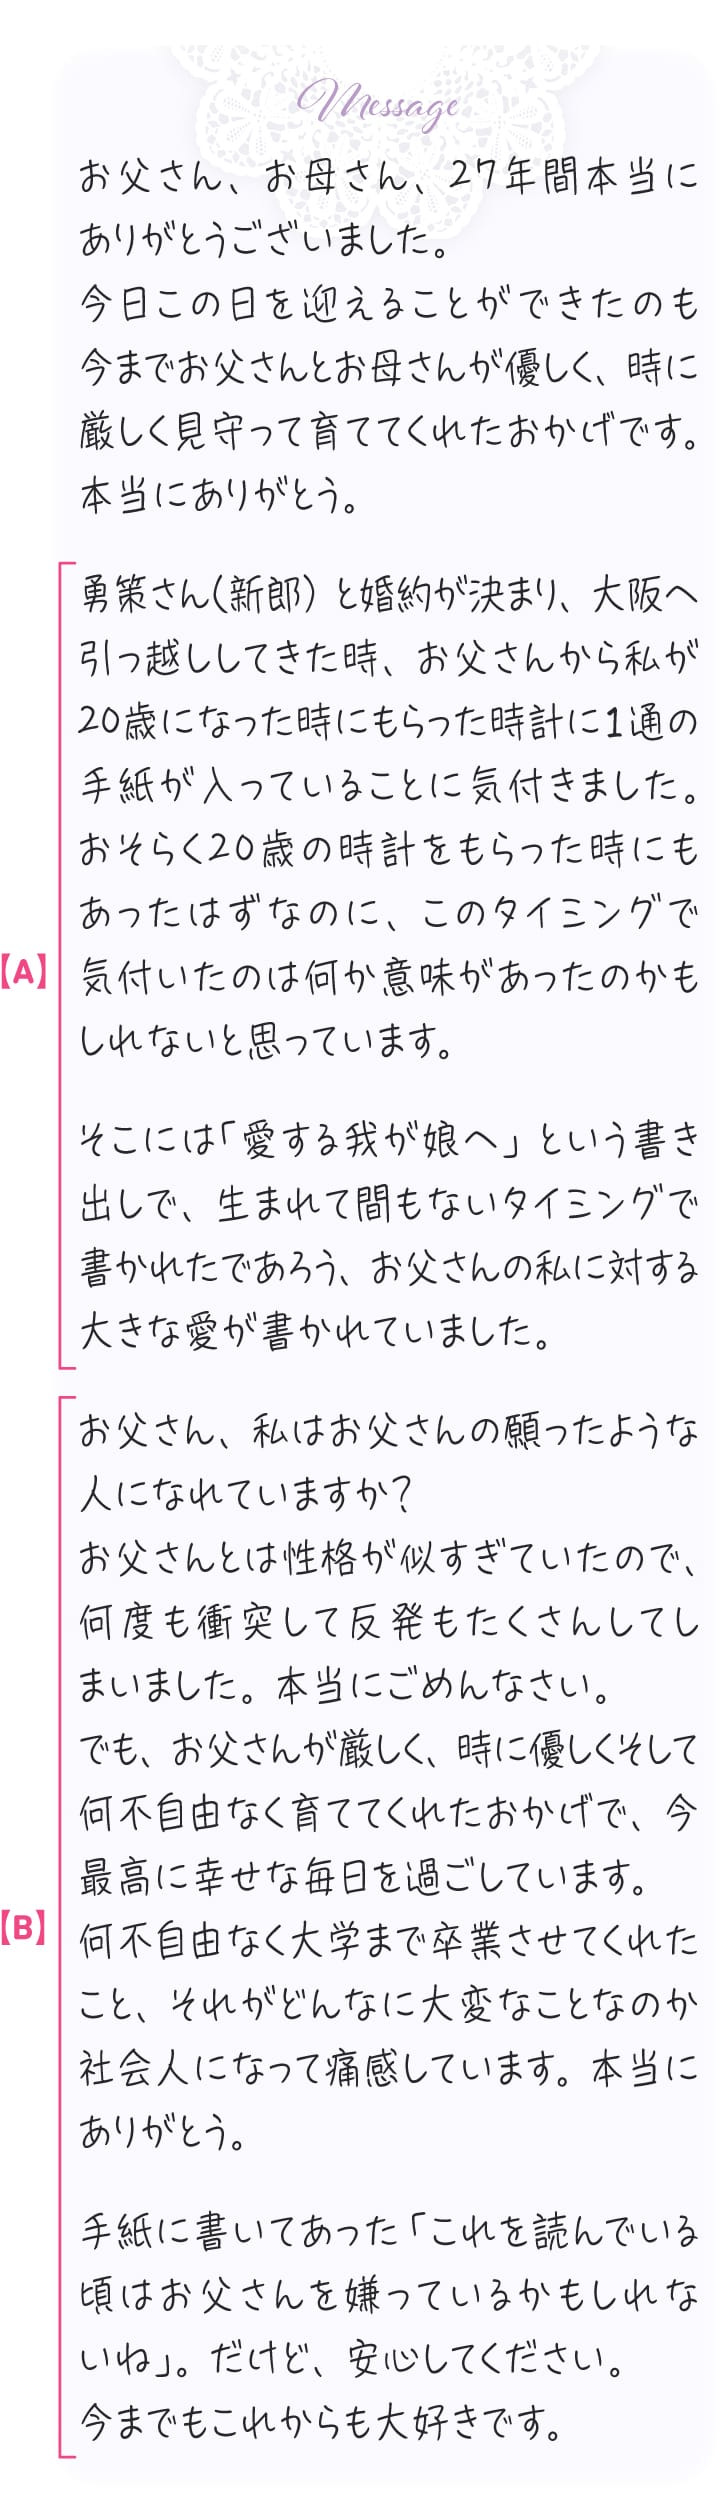 Message
お父さん、お母さん、27年間本当に
ありがとうございました。
今日この日を迎えることができたのも
今までお父さんとお母さんが優しく、時に
厳しく見守って育ててくれたおかげです。
本当にありがとう。
勇策さん(新郎)と婚約が決まり、大阪へ
引っ越ししてきた時、お父さんから私が
20歳になった時にもらった時計に1通の
手紙が入っていることに気付きました。
おそらく20歳の時計をもらった時にも
あったはずなのに、このタイミングで
【A】
気付いたのは何か意味があったのかも
しれないと思っています。
そこには「愛する我が娘へ」という書き
出しで、生まれて間もないタイミングで
書かれたであろう、お父さんの私に対する
大きな愛が書かれていました。
お父さん、私はお父さんの願ったような
人になれていますか?
お父さんとは性格が似すぎていたので、
何度も衝突して反発もたくさんしてし
まいました。本当にごめんなさい。
でも、お父さんが厳しく、時に優しくそして
何不自由なく育ててくれたおかげで、今
最高に幸せな毎日を過ごしています。
【B】
何不自由なく大学まで卒業させてくれた
こと、それがどんなに大変なことなのか
社会人になって痛感しています。本当に
ありがとう。
手紙に書いてあった「これを読んでいる
頃はお父さんを嫌っているかもしれな
いね」。だけど、安心してください。
今までもこれからも大好きです。